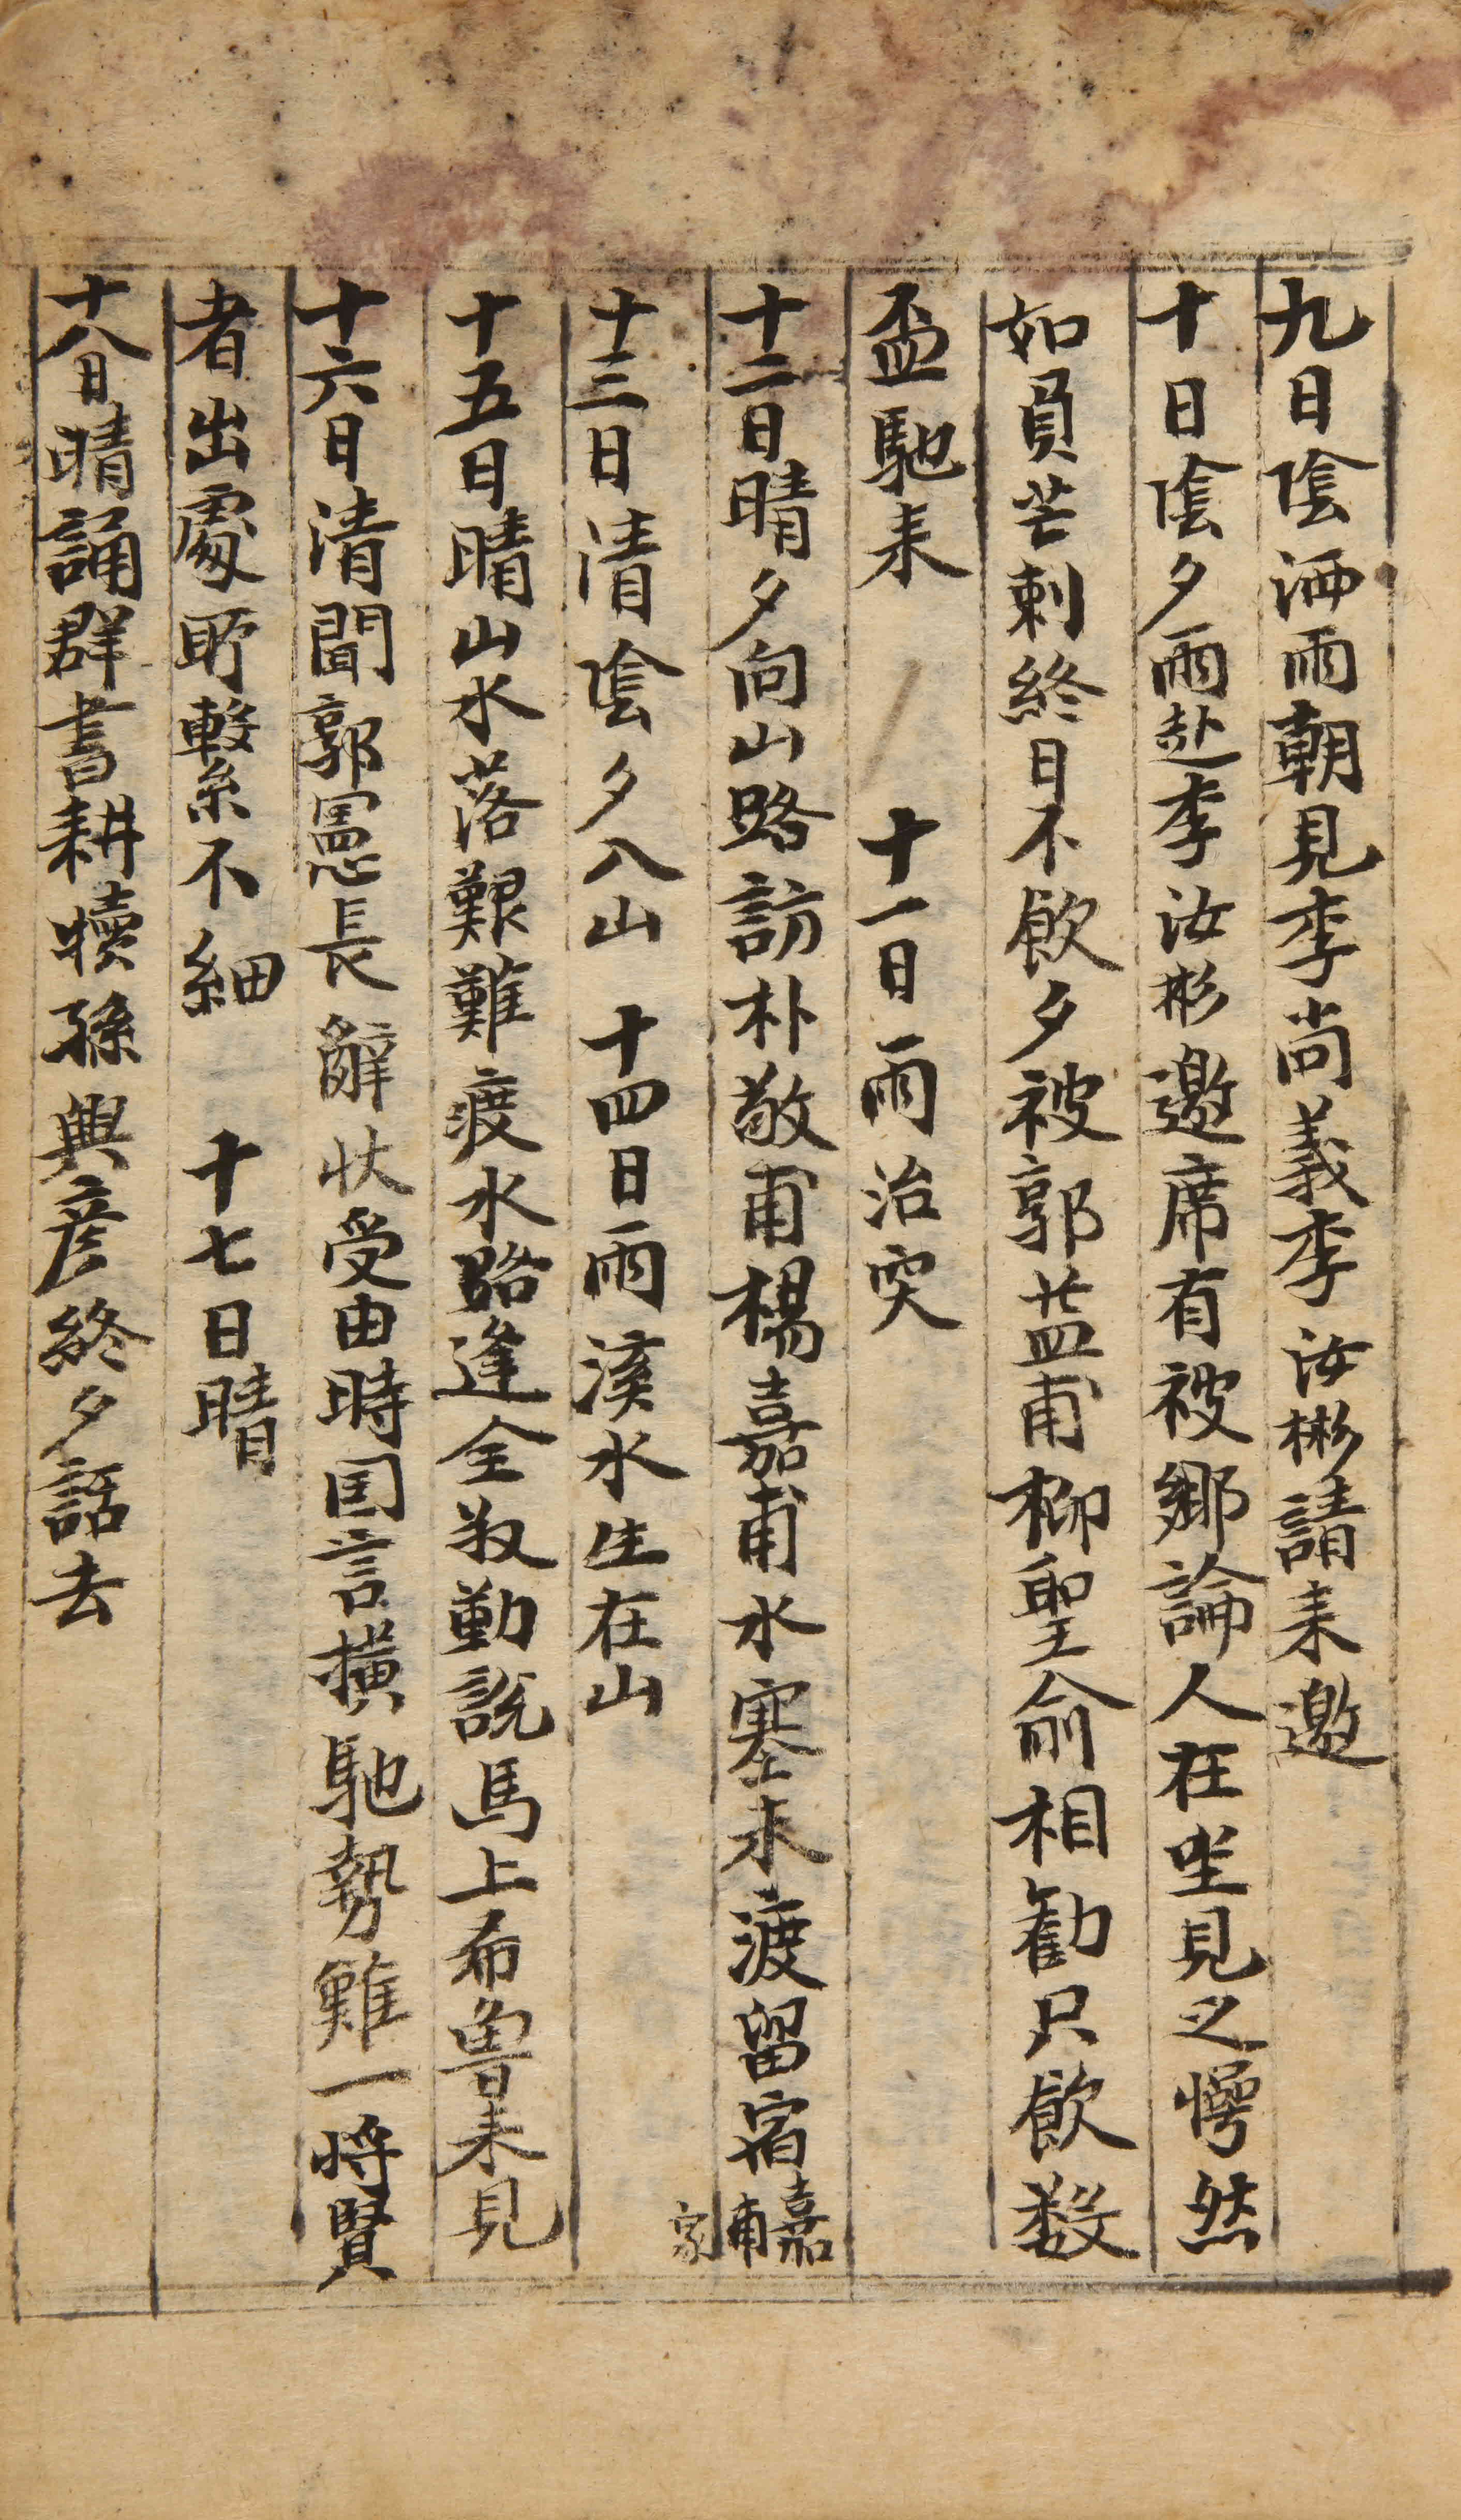 九日陰洒雨朝見李尚義李汝彬請来邀
十日陰夕雨赴李汝彬邀席有被鄕論人在坐見之愕然
如負芒刺終日不飮夕被郭益甫柳聖兪相勸只飮数
盃馳来　十一日雨治突
十二日晴夕向山路訪朴敬甫楊嘉甫水塞未渡留宿嘉甫家
十三日清陰夕入山　十四日雨溪水生在山
十五日晴山水落艱難渡水路逢全汝勤說馬上希魯来見
十六日清聞郭憲長辭状受由時囯言横馳勢難一將賢
者出處所繫不細　十七日晴
十八日晴誦群書耕犢孫興彦終夕話去